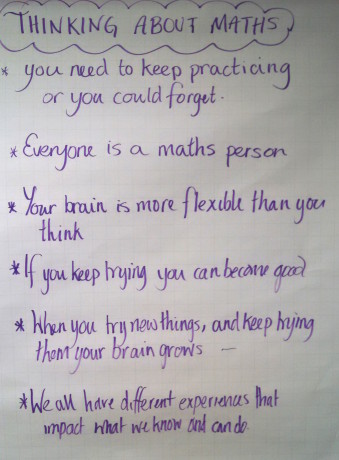 THINKING ABOUT MATHS
* you need to keep practicing
or you could forget.
* Everyone is a maths person
* Your brain is more flexible than you
think
* If you keep trying you can become good
* When you try new things, and keep trying
them your brain grows —
* We all have different experiences that
impact what we know and can do.